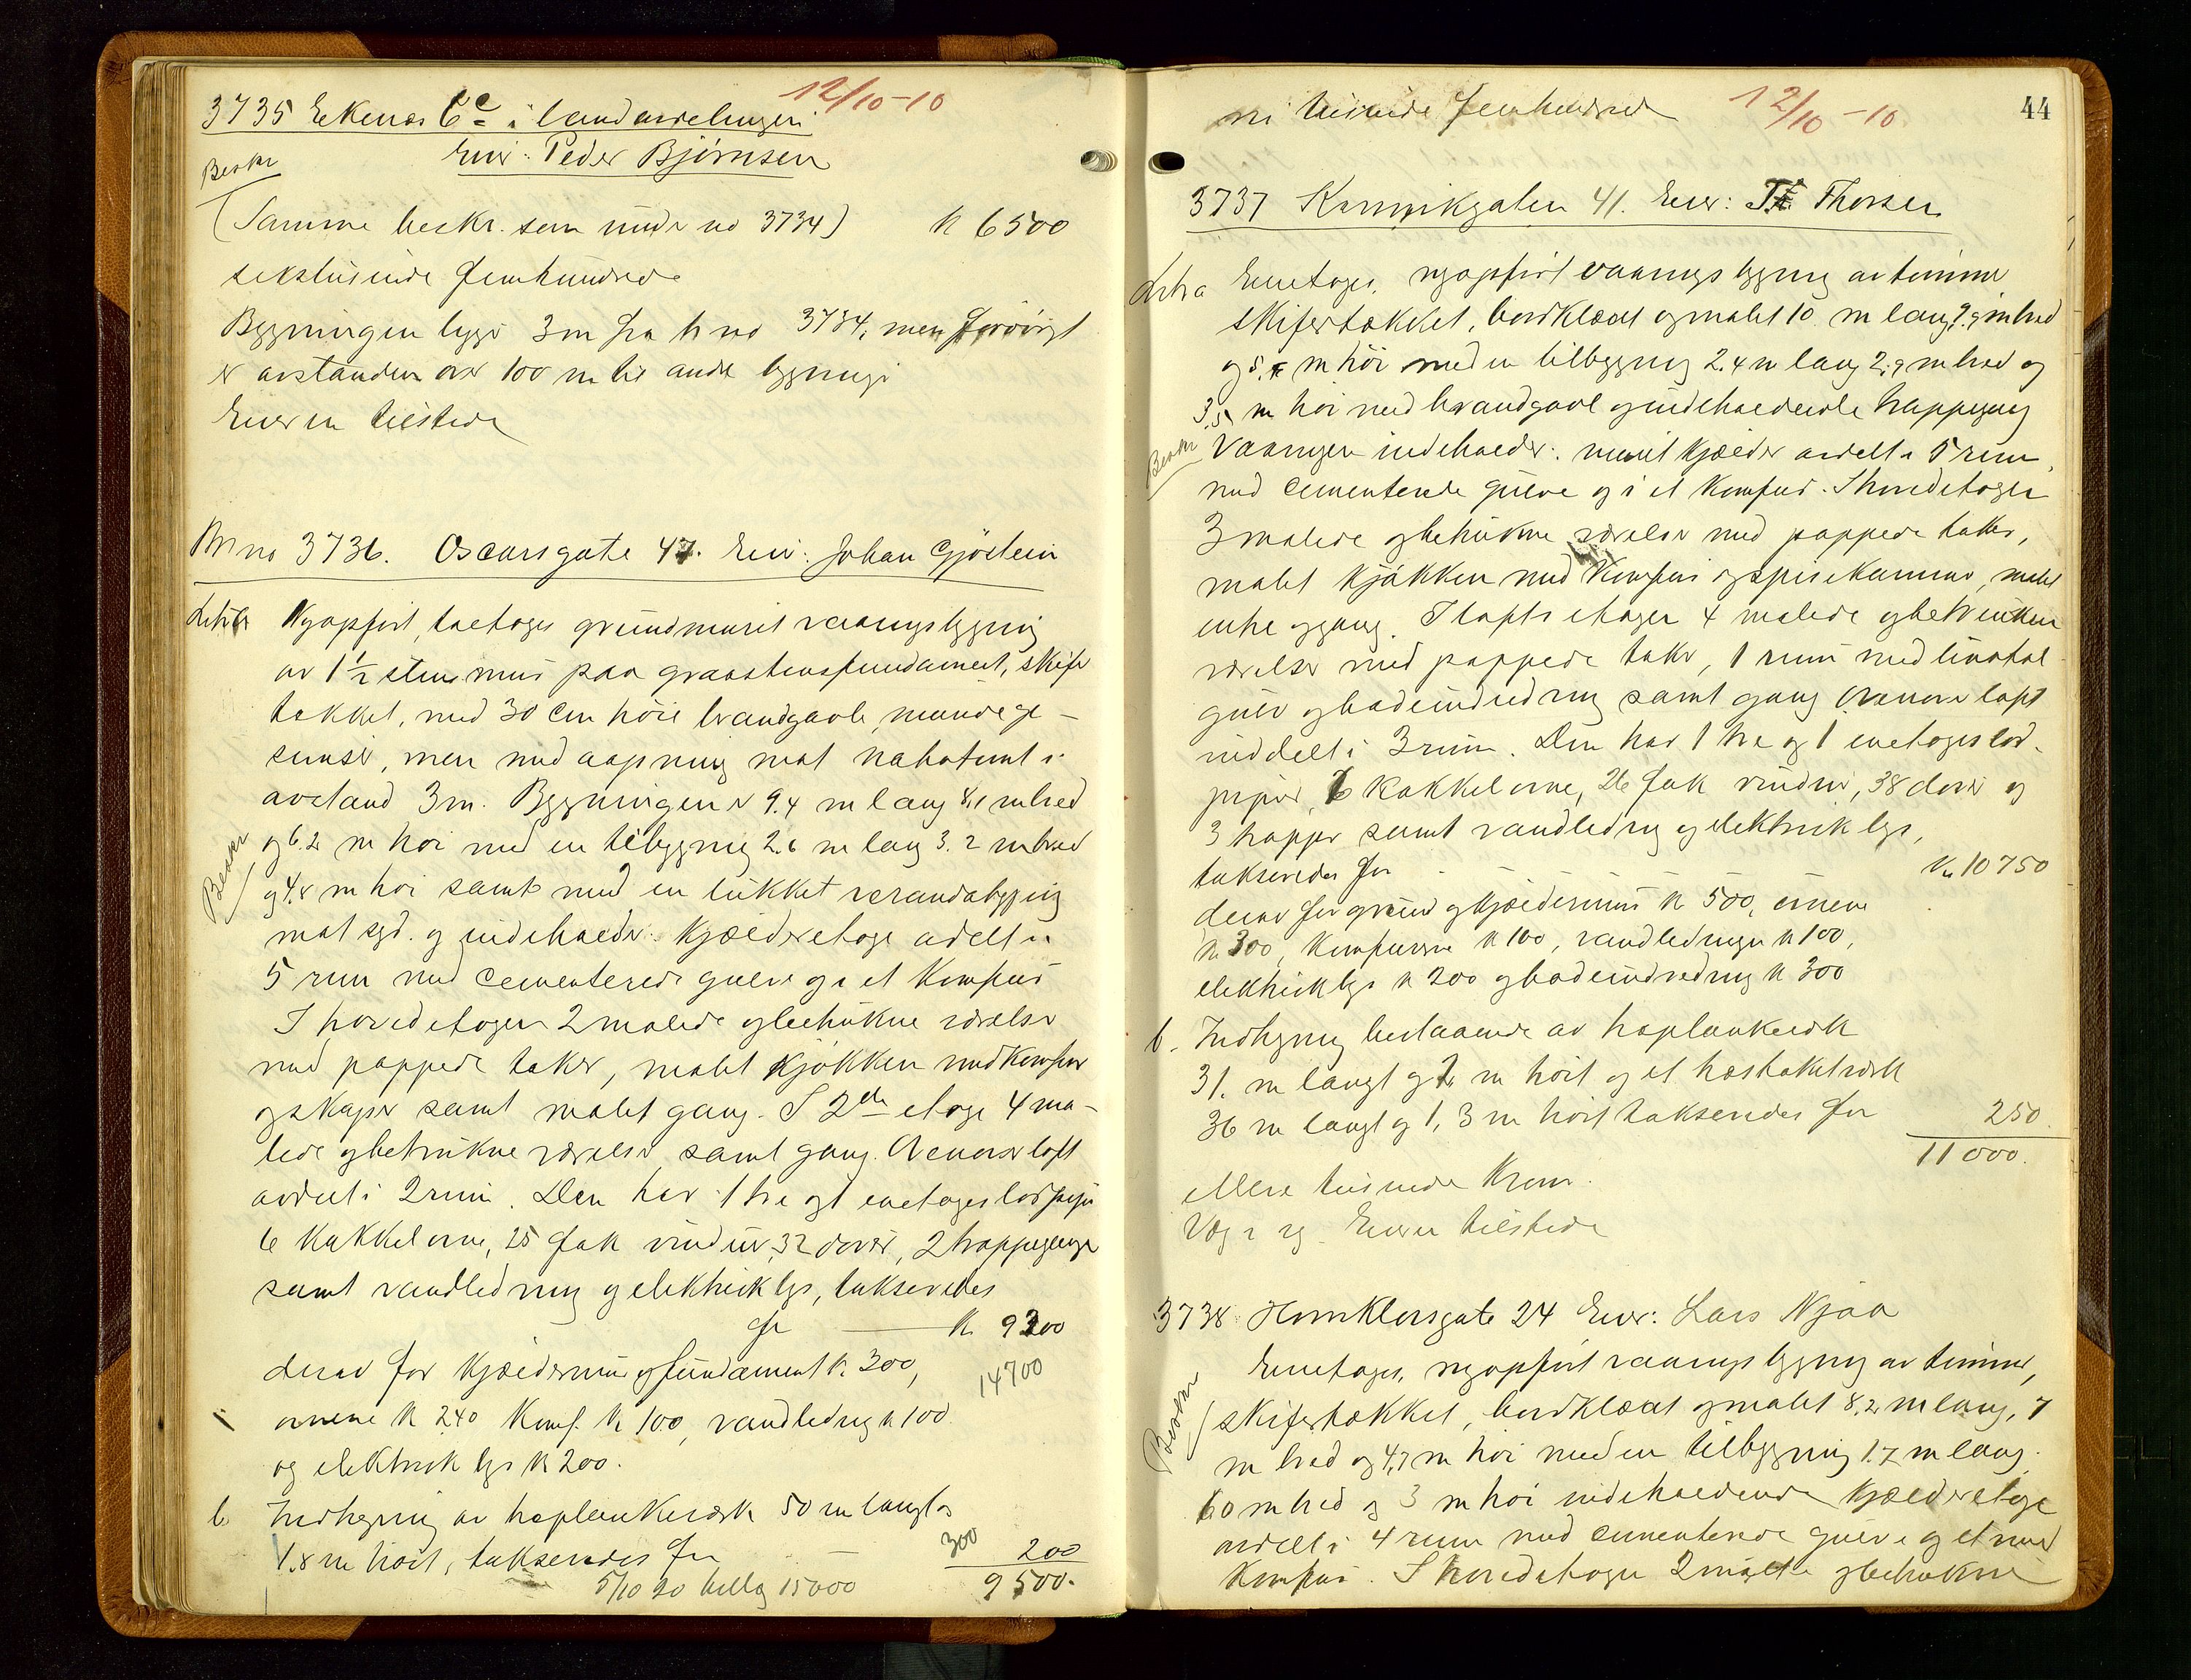 12/10-10
3735 Ekenæs 6c i landavdelingen
Eier: Peder Bjørnsen
Beskr
(Samme beskr. som under no 3734) k 6500
sekstusinde femhundrede
Bygningen ligger 3 m fra br no 3734, men forøvrigt
er avstanden over 100 m til andre bygninger
Eieren tilstede
Br no 3736. Oscarsgate 47. Eier: Johan Gjöstein
Litra Nyopført, toetages grundmuret vaaningsbygning
av 1 1/2 stens mur paa graastensfundament, skifer
tækket, med 30 cm höie brandgavle, murede ge-
simser, men med aapning mot nabotomt i
avstand 3 m. Bygningen er 9.4 m lang 8.1 m bred
Beskr
og 6.2 m höi med en tilbygning 2.6 m lang 3.2 m bred
og 4.8 m höi samt med en lukket verandabygning
mot syd. og indeholder: Kjælderetage avdelt i
5 rum med cementerede gulve og i et Komfur
I hovedetagen 2 malede og betrukne værelser
med pappede taker, malet Kjøkken med Komfur
og skaper samt malet gang. I 2den etage 4 ma-
lede og betrukne værelser samt gang. Ovenover loft
avdelt i 2 rum. Den har 1 tre og 1 enetages lodpipe
6 Kakkelovne, 25 fak vinduer, 32 dører, 2 trappegange
samt vandledning og elektrisk lys, takseredes
for K. 9300
derav for Kjældermur og fundament k. 300,
14700
ovnene k 240 Komf. k 100, vandledning k 100
og elektrisk lys k 200.
b Indhegning av træplankeværk 50 m langt og
1.8 m höit, takseredes for 300 200
5/10 20 tillæg 15000 9500.
ni tusinde femhundred 12/10-10 44
3737 Kannikgaten 41. Eier: T. Thorsen
Litra Enetages, nyopført vaaningsbygning av tømmer
skifertækket, bordklædt og malet 10 m lang 9 m bred
og 5. m höi med en tilbygning 2.4 m lang 2.9 m bred og
3.5 m höi med brandgavl og indeholdende trappegang
Beskr
Vaaningen indeholder: muret Kjælder avdelt i 5 rum,
med cementerede gulve og i et Komfur. I hovedetagen
3 malede og betrukne værelser med pappede taker,
malet Kjökken med Komfur og spisekammer, malet
entre og gang. I loftsetagen 4 malede og betrukne
værelser med pappede taker, 1 rum med
gulv og badeindredning samt gang Ovenover loft
inddelt i 3 rum. Den har 1 tre og 1 enetages lod-
piper, 6 Kakkelovne, 26 fak vinduer, 38 dører og
3 trapper samt vandledning og elektrisk lys,
takseredes for Kr 10750
derav for grund og kjældermur k 500, ovnene
k 300, Komfurene k 100, vandledningen k 100,
elektrisk lys k 200 og badeindredning k 300
b. Indhegning bestaaende av træplankeværk
31. m langt og 2 m höit og et træstaketværk
36 m langt og 1,3 m höit takseredes for 250.
11000.
elleve tusinde kroner.
Eieren tilstede
3738 Harnklorsgate 24 Eier: Lars Njaa
Enetages, nyopført vaaningsbygning av tømmer,
Beskr
skifertækket, bordklædt og malet 8.2 m lang, 7
m bred og 4,7 m höi med en tilbygning 1.7 m lang
60 m bred og 3 m höi indeholdende Kjælderetage
avdelt i 4 rum med cementerede gulve og et med
Komfur. I hovedetagen 2 malte og betrukne